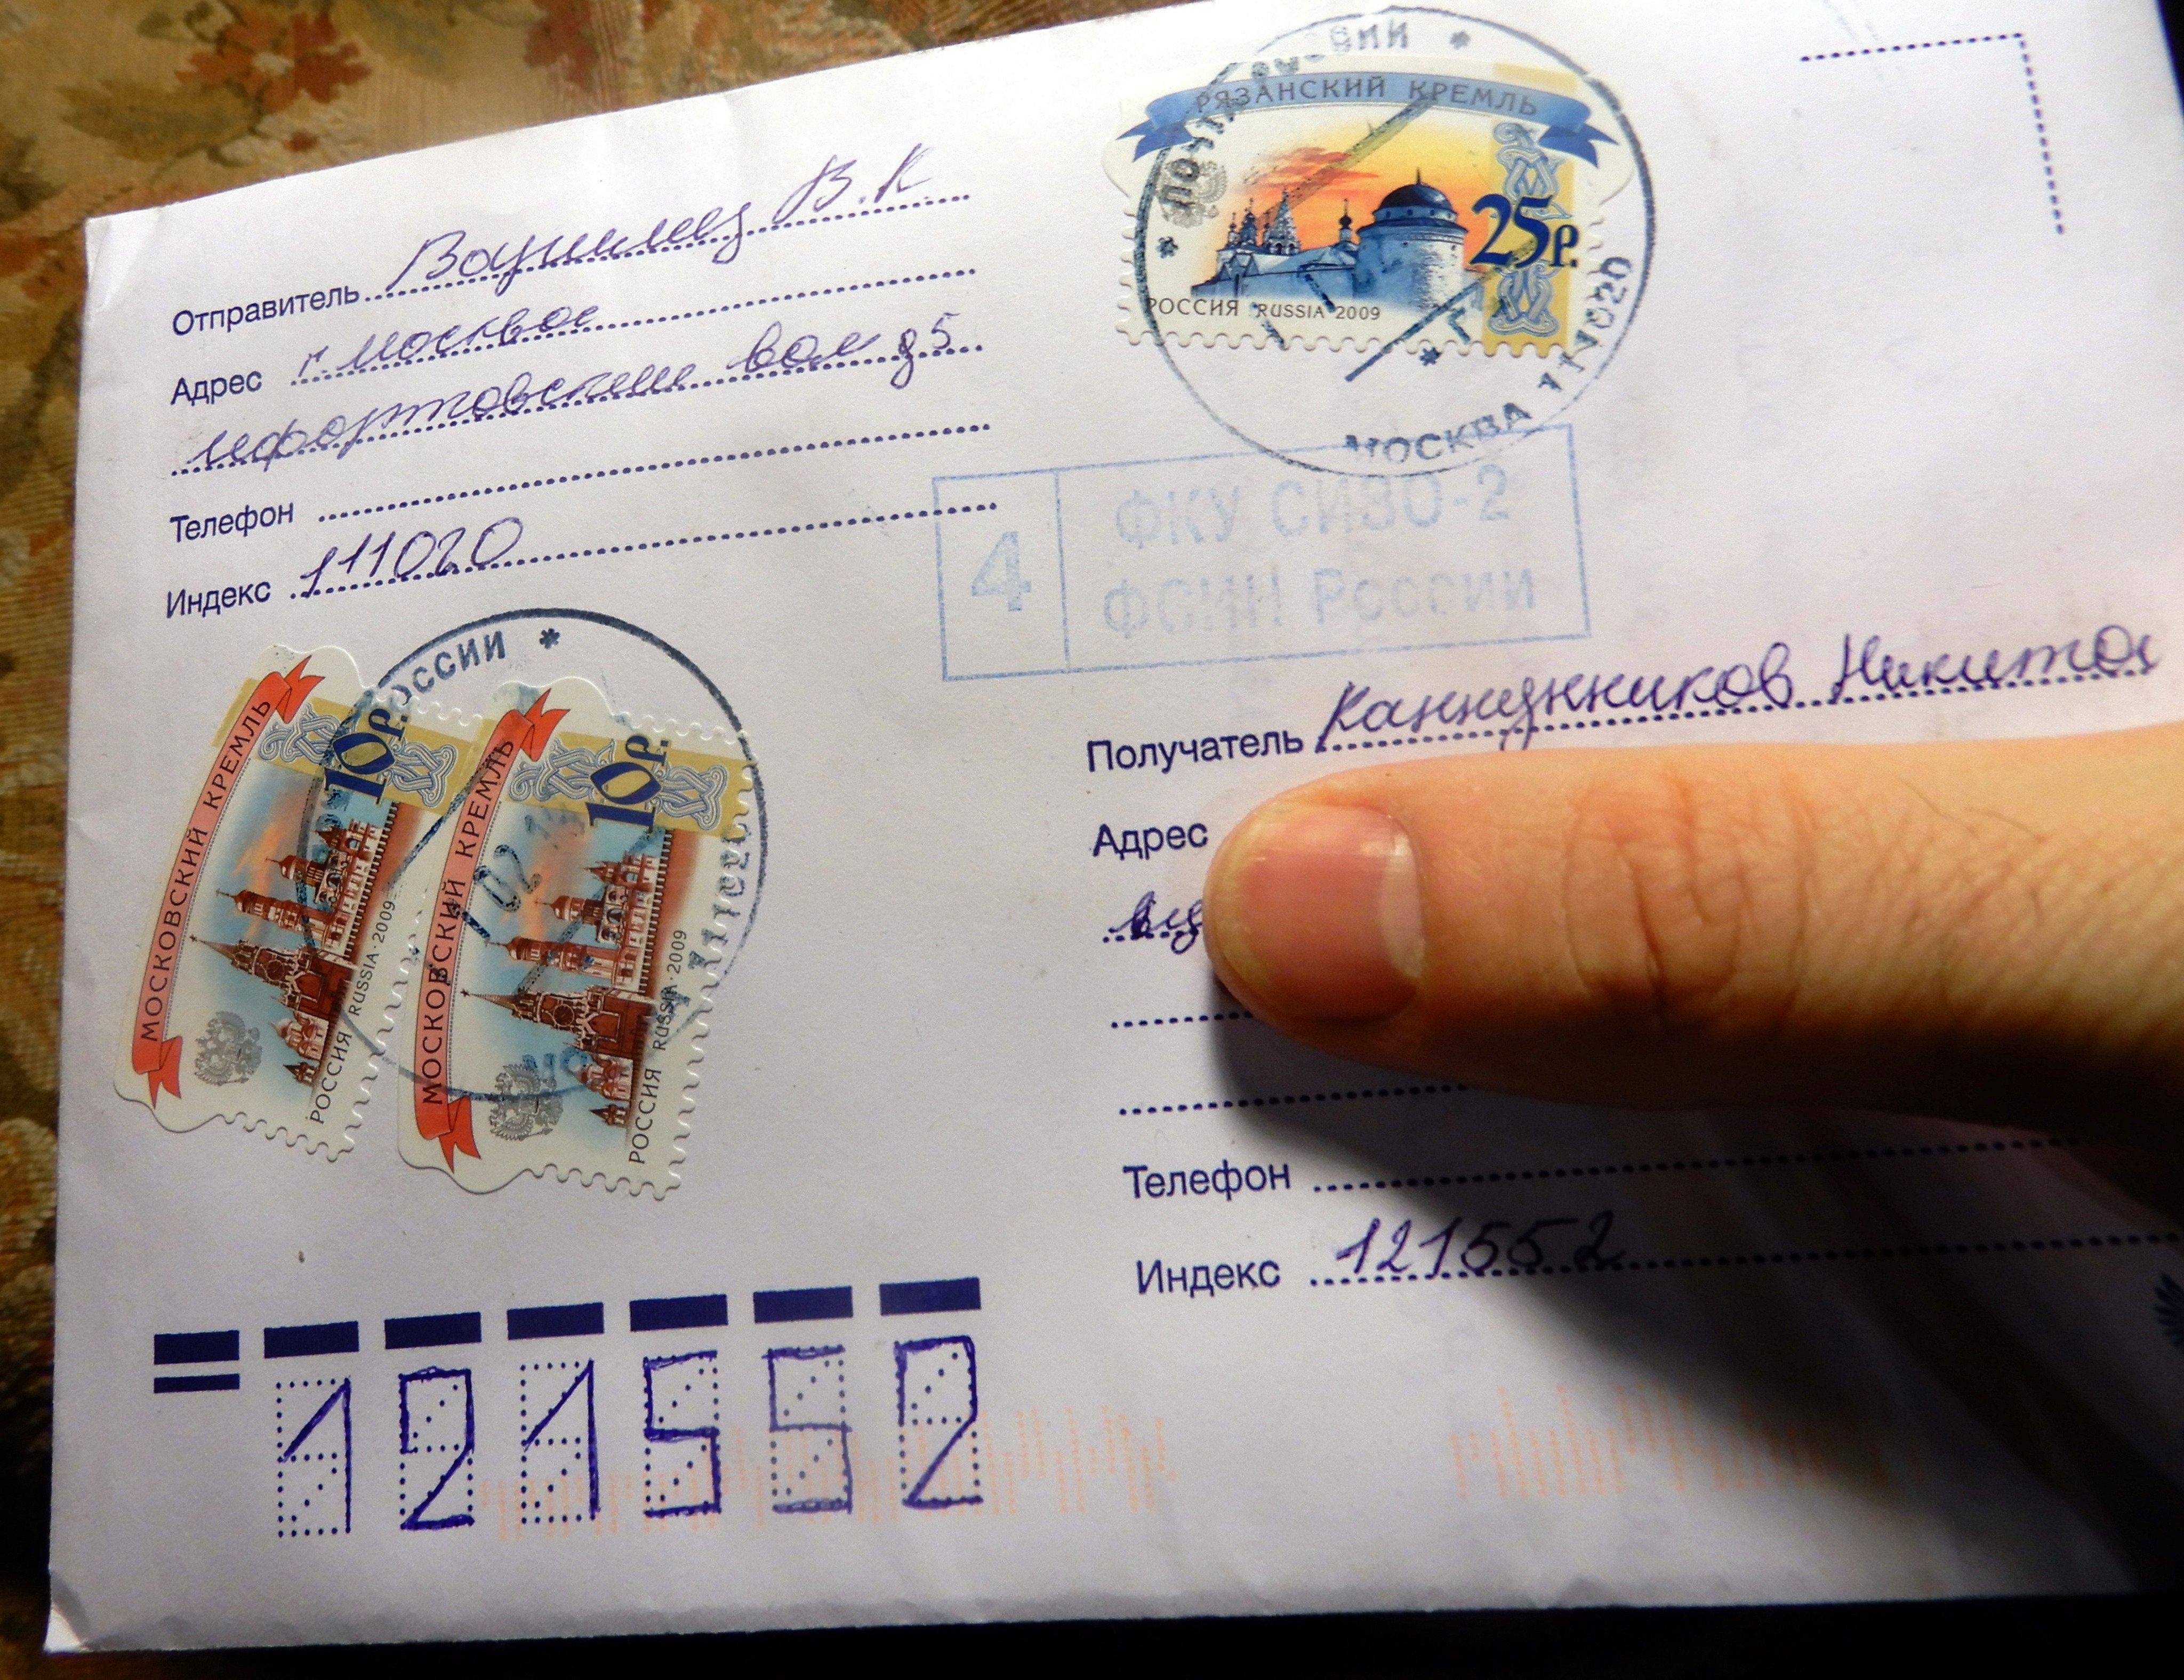 Отправитель Ващилец В.К
Адрес г. Москва
Лефортовский вал д5
Телефон
Индекс 111020
РОССИИ *
РЯЗАНСКИЙ КРЕМЛЬ
25р.
РОССИЯ RUSSIA 2009
МОСКВА 111020
4
ФКУ СИЗО-2
ФСИН России
МОСКОВСКИЙ КРЕМЛЬ
10р.
РОССИЯ RUSSIA · 2009
РОССИИ *
МОСКОВСКИЙ КРЕМЛЬ
10р.
РОССИЯ RUSSIA · 2009
Получатель Каннунников Никита
Адрес
Телефон
Индекс 121552
121552